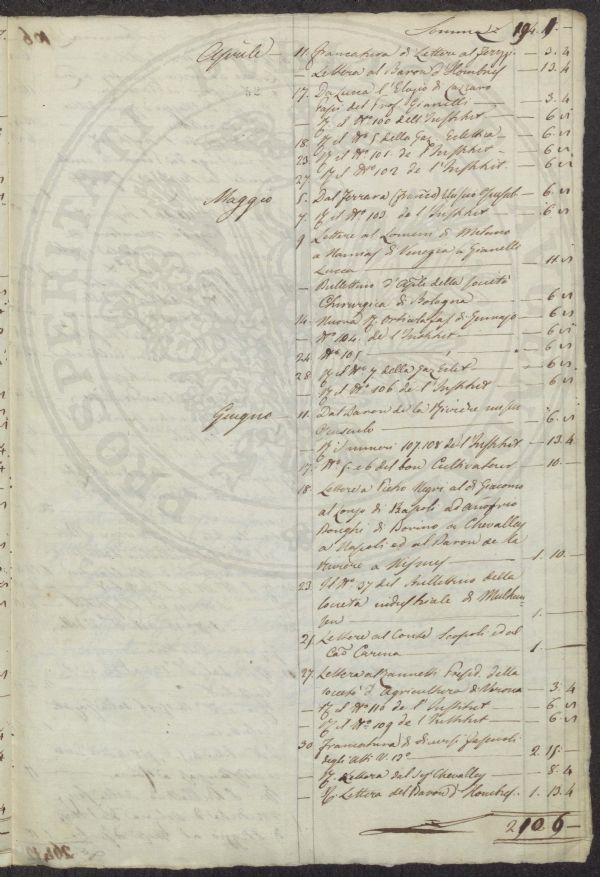 Somma £ 194. 1.
Aprile — 11. Francatura di Lettere al — 3. 4
— Lettera al Baron d'Hombres — 13. 4
17. Da Lucca l'Elogio di Lazzaro
Papi del Prof. Gianelli — 3. 4
— Pel N.º 100 dell'Institut — 6
18. Pel N.º 5 della Gaz. Eclettica — 6
23. Pel N.º 101 de l'Institut — 6
27. Pel N.º 102 de l'Institut — 6
Maggio — 5. Dal Ferrara — 6
7. Pel N.º 103 de l'Institut — 6
9. Lettere al Lomeni di Milano
a di Venezia a Gianelli
Lucca — 11
— Bullettino d'Aprile della Società
Chirurgica di Bologna — 6
14. di Gennajo — 6
— N.º 104. de l'Institut — 6
24. N.º 105 — 6
28. Pel N.º 7 della Gaz. Eclet. — 6
— Pel N.º 106 de l'Institut — 6
Giugno — 11. Dal Baron de la Rivière
— 6
— Pei numeri 107. 108 de l'Institut — 13. 4
17. N.º 5 e 6 del bon Cultivateur — 10. —
18. Lettere a Pietro Negri al di Giacomo
al di Napoli ad Onofrio
Bonghi di Bovino a Chevalley
a Napoli ed al Baron de la
Rivière a Nismes — 1. 10. —
23. Il N.º 37 del Bullettino della
Società industriale di Mulhau-
sen — 1. —
25. Lettere al Conte Scopoli ed al
Cav. Carena — 1. —
27. Lettera al Zannetti Presid. della
Società d'Agricoltura di Verona — 3. 4
— Pel N.º 110 de l'Institut — 6
— Pel N.º 109 de l'Institut — 6
30. Francatura di diversi fascicoli
degli Atti V. 13º — 2. 15.
— Per Lettera dal Sig. Chevalley — 8. 4
— Per Lettera del Baron d'Hombres. 1. 13. 4
210 6 —